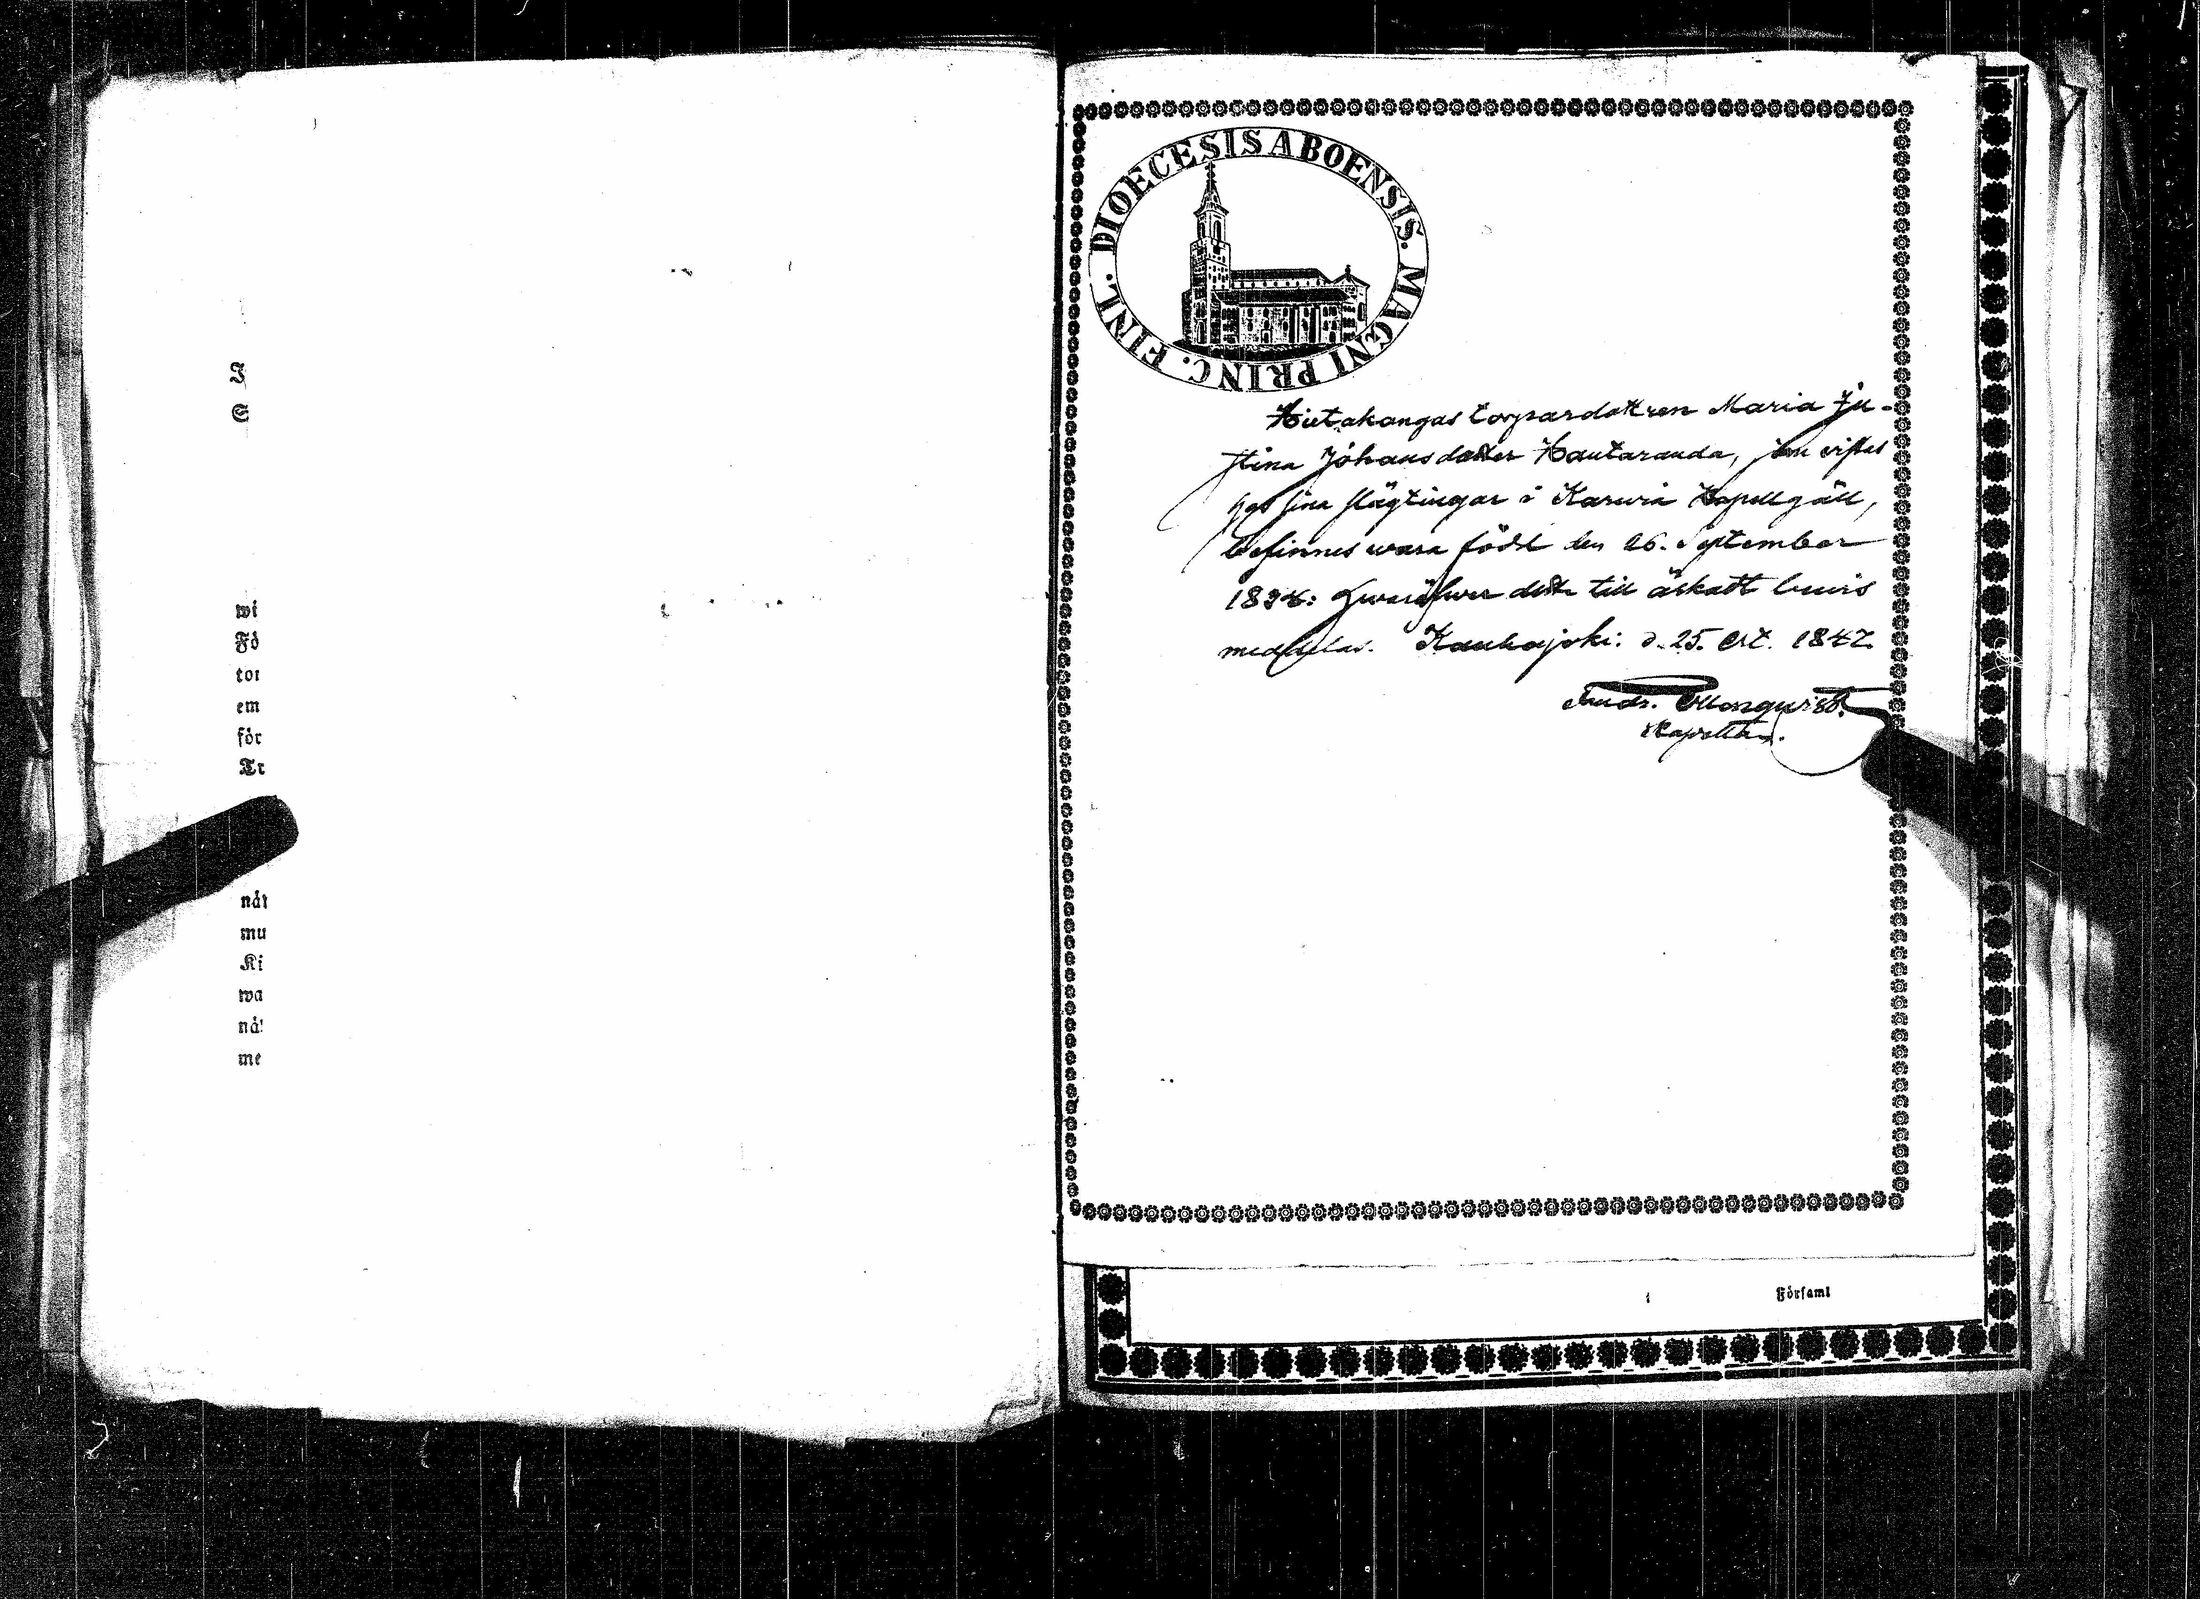 I
S
wi
Fö
tor
em
för
Tr
nåt
mu
Ki
wa
nå
me
DIOECESIS ABOENSIS. MAGNI PRINC. FINL.
Hietakangas torpardottren Maria Ju-
stina Johansdotter Hautaranda, som vistas
hos sina slägtingar i Karvia Kapellgäll,
befinnes wara född den 26. September
hwaröfwer detta till äskadt bewis
meddelas. Kauhajoki: d. 25. Oct. 1847.
Andr.
Kapellan.
Församl